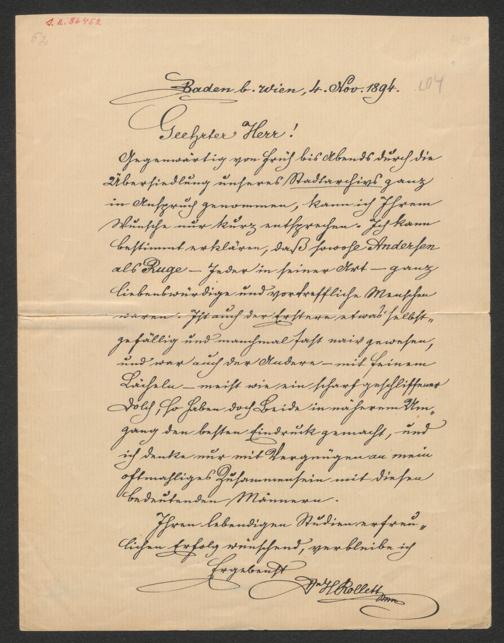 J. N. 86452
62
Baden b. Wien, 4. Nov. 1894.
104
Geehrter Herr!
Gegenwärtig von früh bis Abends durch die
Übersiedlung unseres Stadtarchivs ganz
in Anspruch genommen, kann ich Ihrem
Wunsche nur kurz entsprechen. Ich kann
bestimmt erklären, daß sowohl Andersen
als Ruge – Jeder in seiner Art – ganz
liebenswürdige und vortreffliche Menschen
waren. Ist auch der Erstere etwas selbst=
gefällig und manchmal fast naiv gewesen,
und war auch der Andere – mit seinem
Lächeln – meist wie ein scharf geschliffener
Dolch, so haben doch Beide in näherem Um=
gang den besten Eindruck gemacht, und
ich denke nur mit Vergnügen an mein
oftmahliges Zusammensein mit diesen
bedeutenden Männern.
Ihren lebendigen Studien erfreu=
lichen Erfolg wünschend, verbleibe ich
Ergebenst
Dr H Rollett